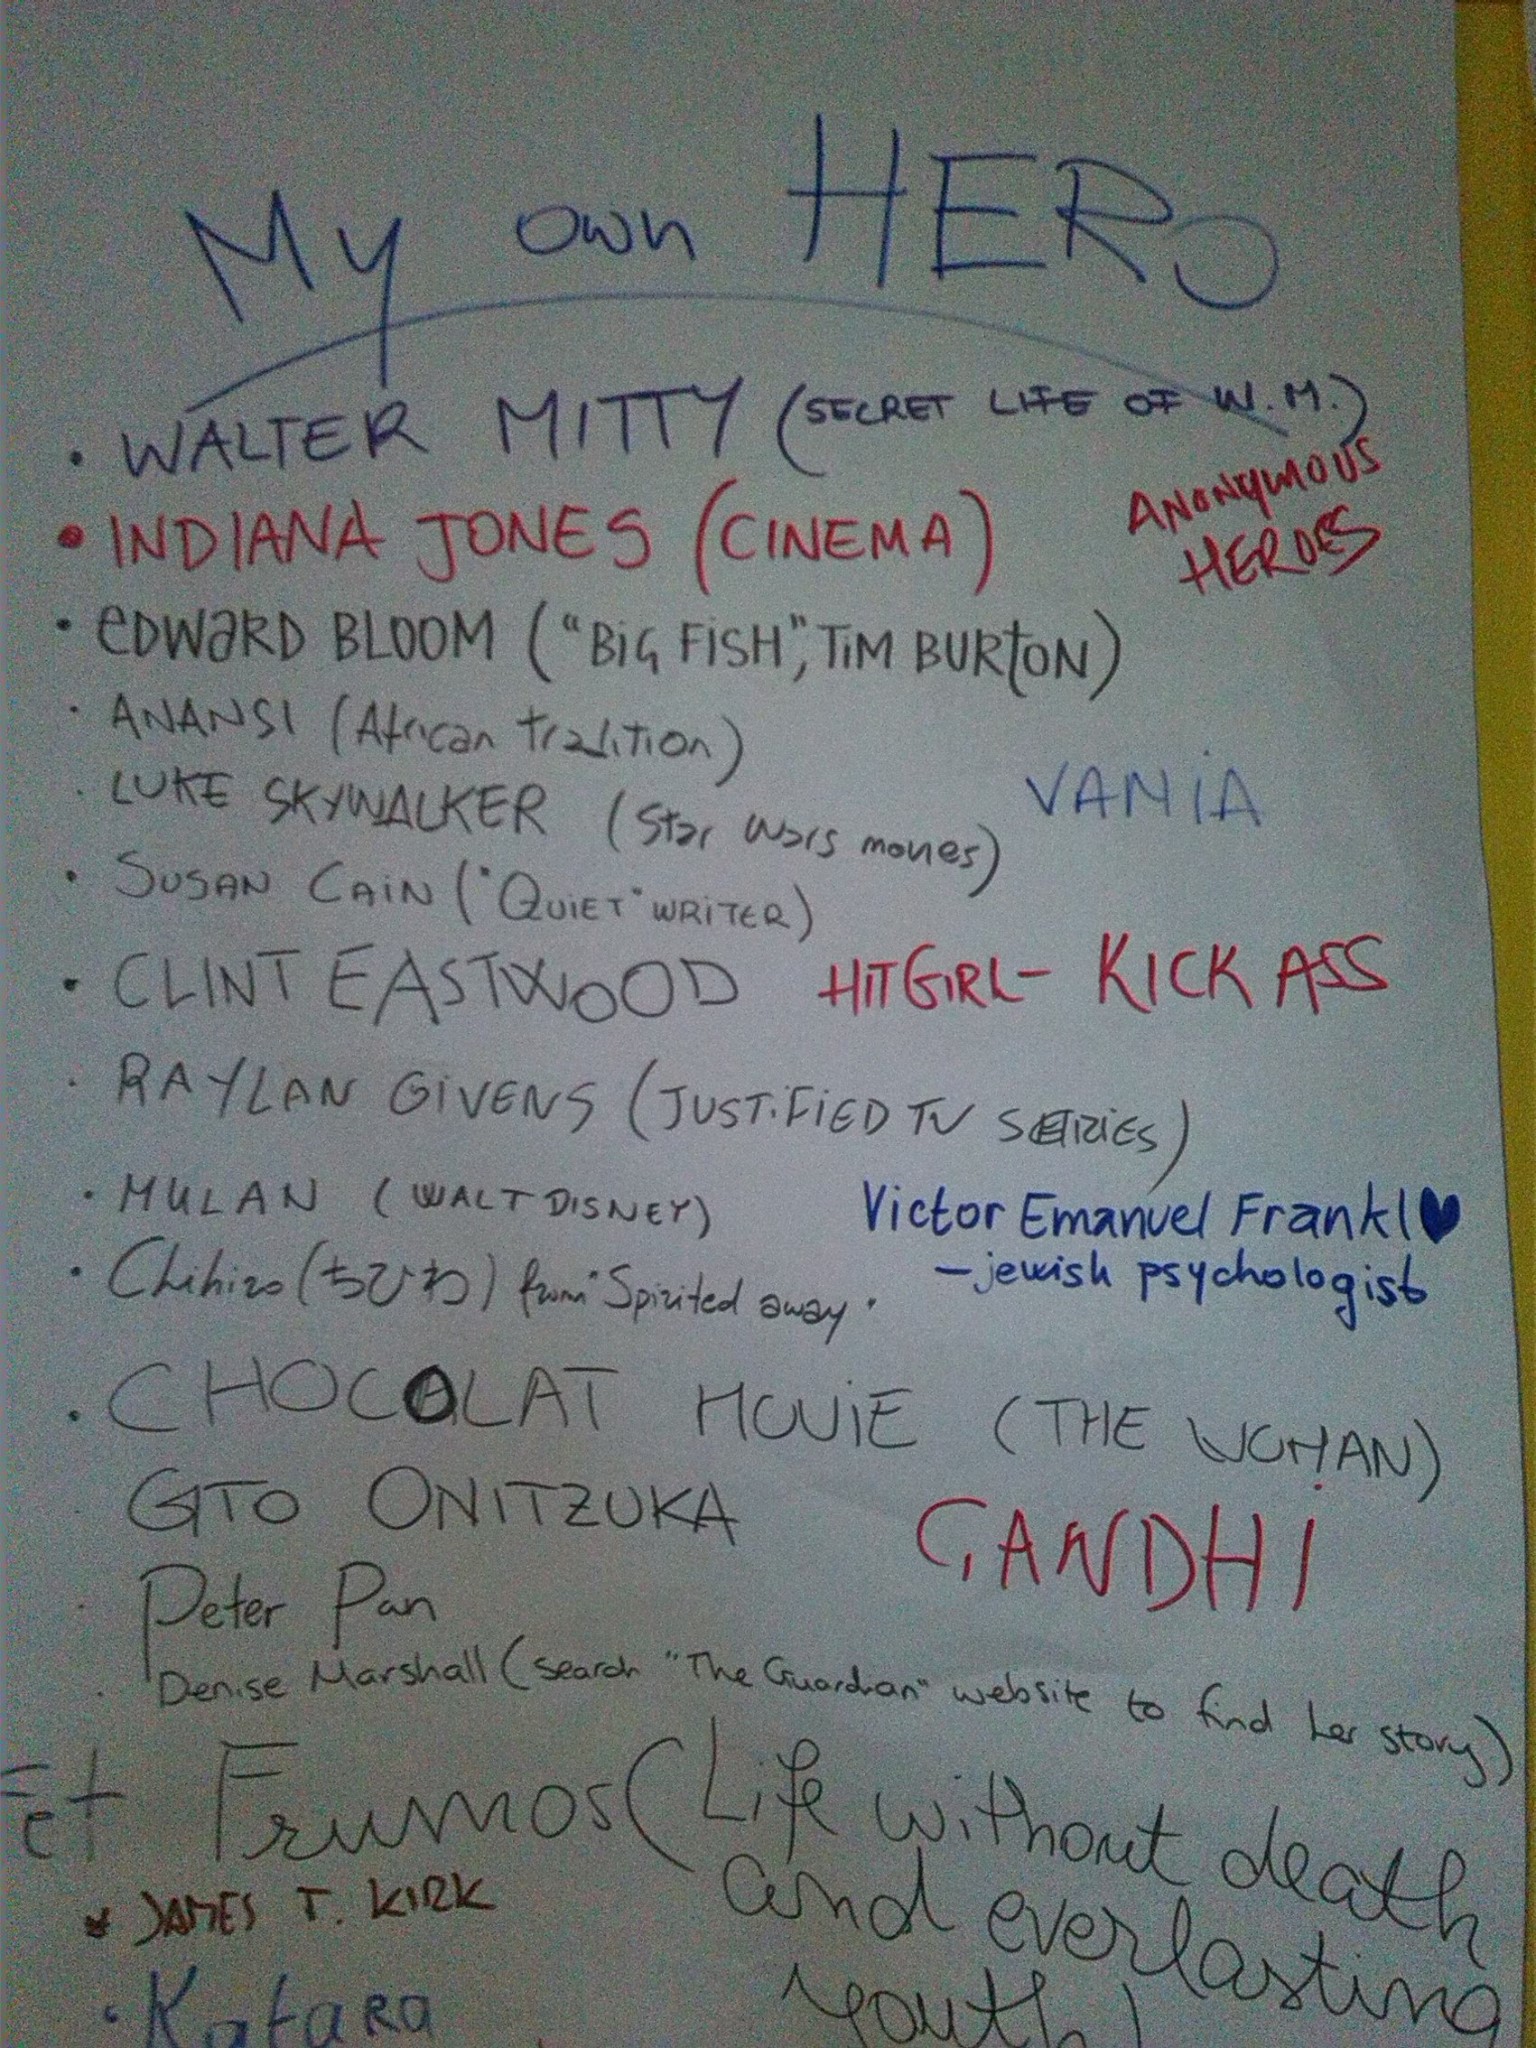 My own HERO
• WALTER MITTY (SECRET LIFE OF W.M.)
ANONYMOUS
HEROES
• INDIANA JONES (CINEMA)
• EDWARD BLOOM ("BIG FISH", TIM BURTON)
• ANANSI (African tradition)
• LUKE SKYWALKER (Star Wars movies)
VANIA
• SUSAN CAIN ("QUIET" WRITER)
• CLINT EASTWOOD
HITGIRL - KICK ASS
• RAYLAN GIVENS (JUSTIFIED TV SERIES)
• MULAN (WALT DISNEY)
Victor Emanuel Frankl ♥
- jewish psychologist
• Chihiro (ちひろ) from "Spirited away"
• CHOCOLAT MOVIE (THE WOMAN)
• GTO ONITZUKA
GANDHI
• Peter Pan
• Denise Marshall (search "The Guardian" website to find her story)
Fet Frumos (Life without death
and everlasting
youth)
* JAMES T. KIRK
• Katara